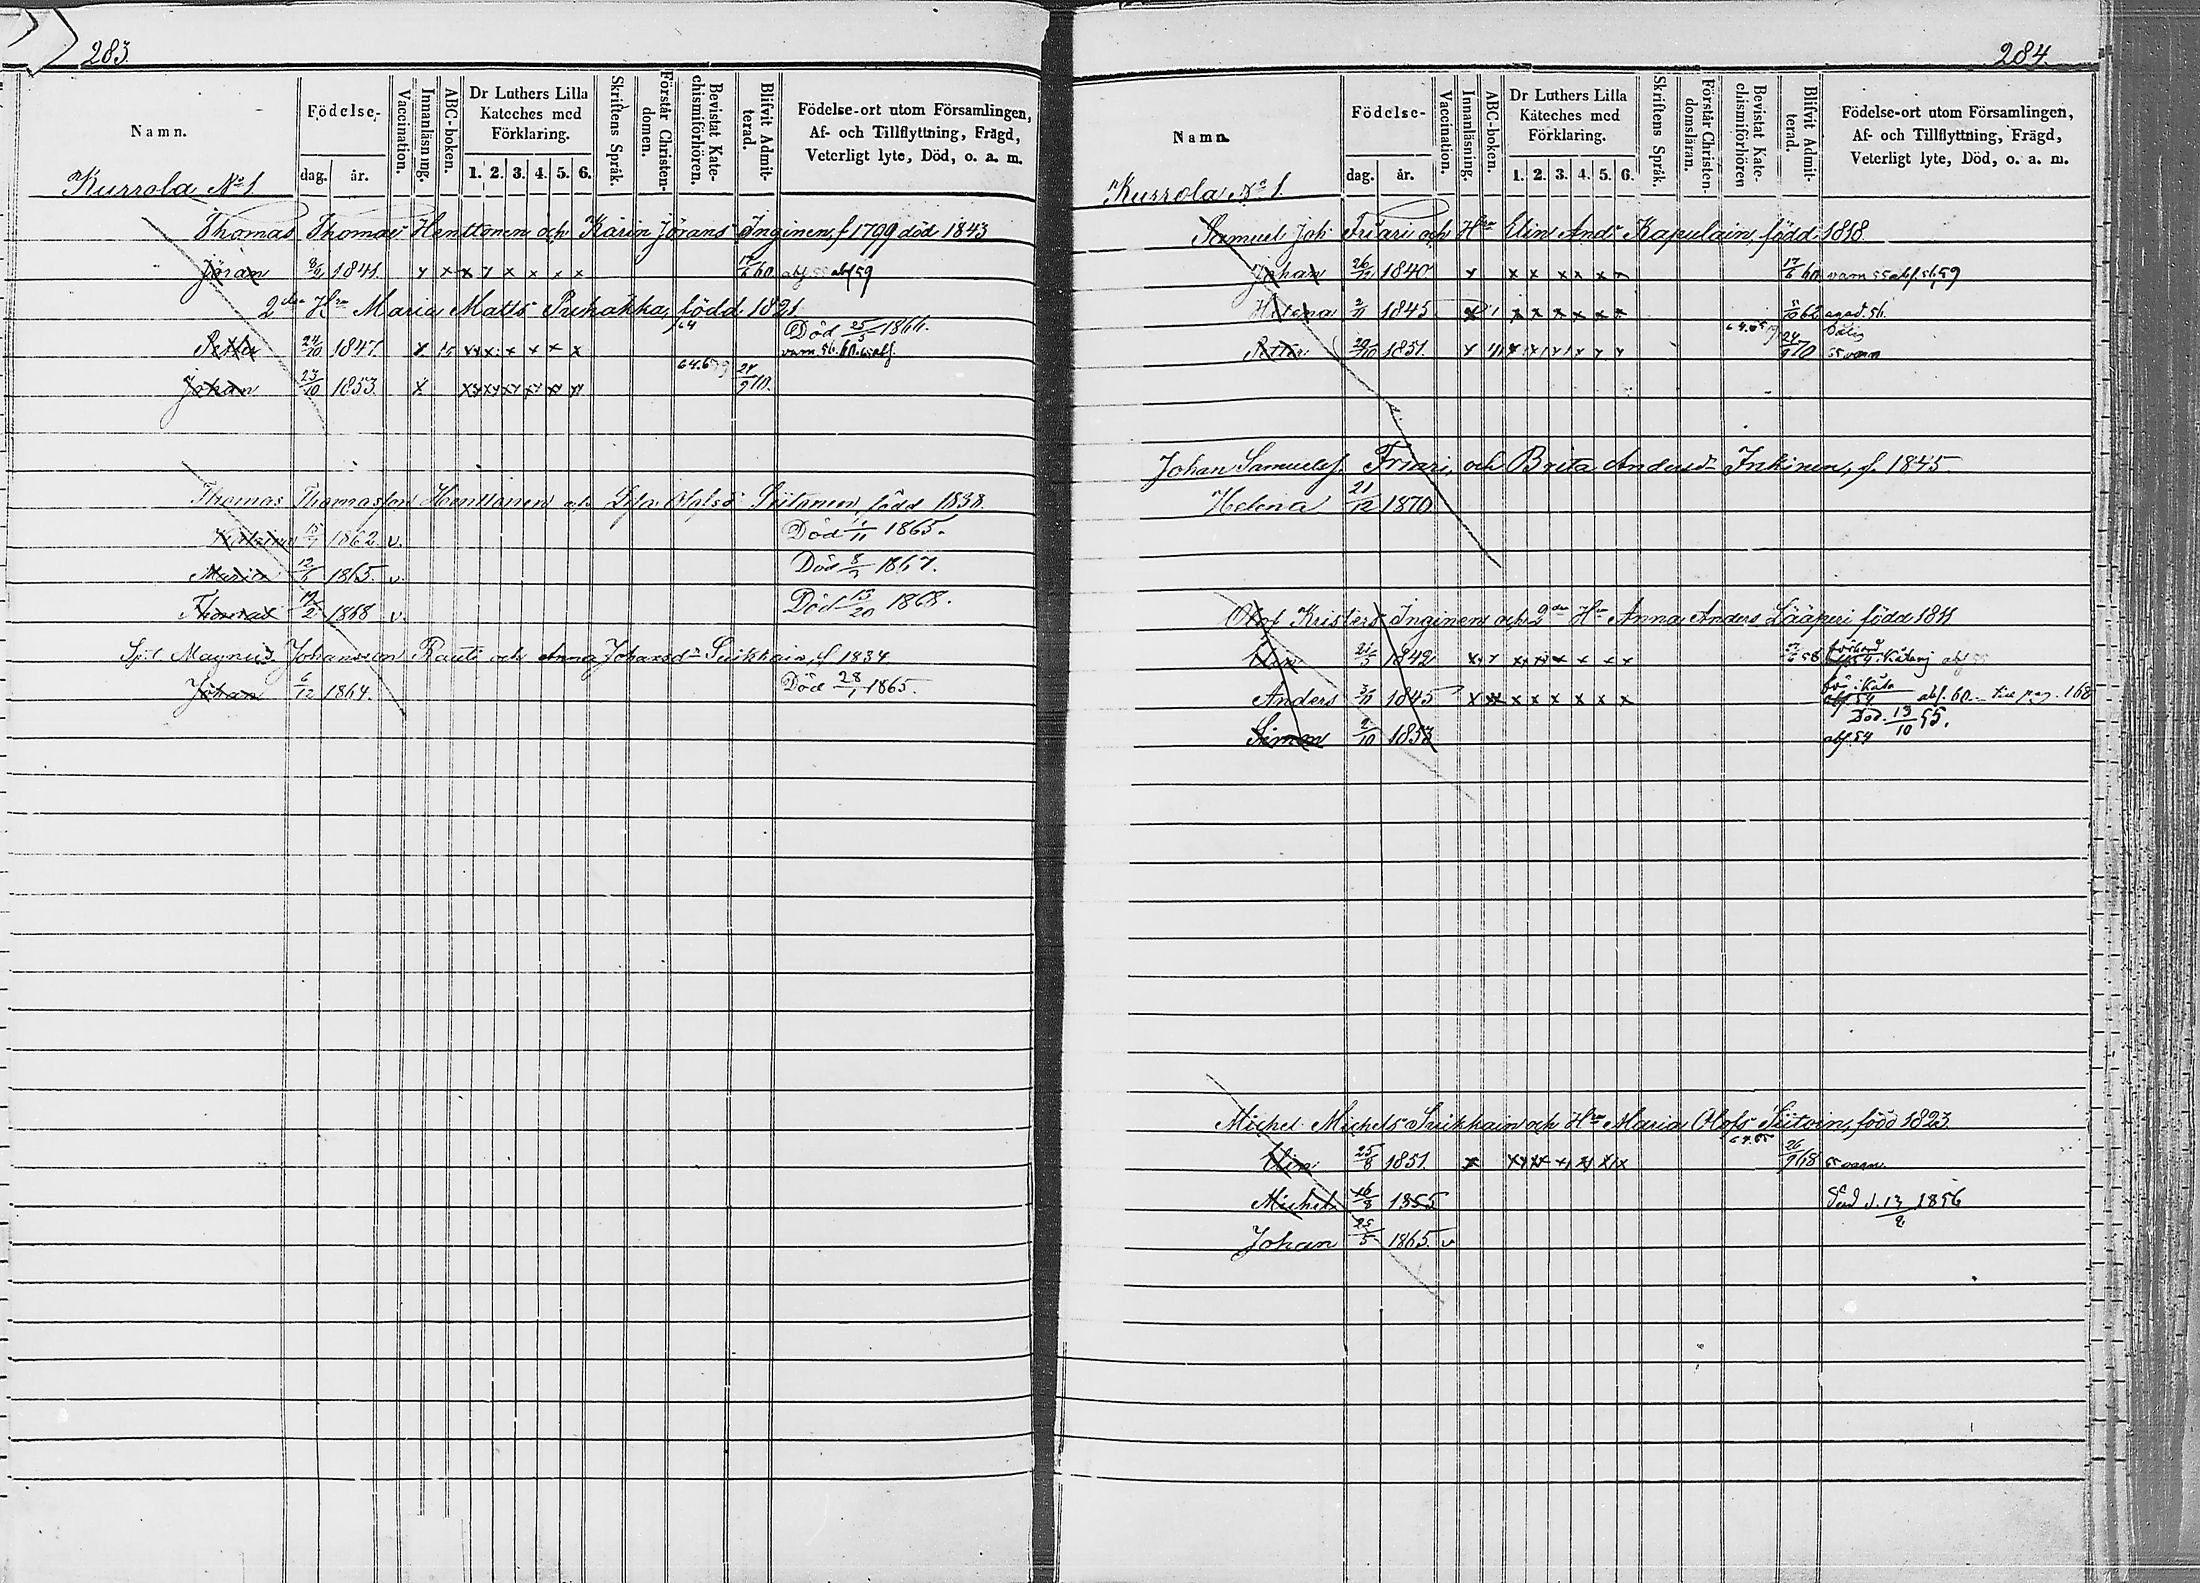 283.
Namn.
Födelse-
dag. år.
Vaccination.
Innanläsning.
ABC-boken.
Dr Luthers Lilla Kateches med Förklaring.
1. 2. 3. 4. 5. 6.
Skriftens Språk.
Förstår Christendomen.
Bevistat Katechismiförhören.
Blifvit Admitterad.
Födelse-ort utom Församlingen,
Af- och Tillflyttning, Frägd,
Veterligt lyte, Död, o. a. m.
Kurrola No 1
Thomas Thomas Henttonen och Karin Jörans Inginen, f 1799 död 1843
Jöran 1841. x x x y x x x x 17/6 60 abf 59
2dra Hru Maria Matts Pukakka, född 1821.
Petter 24/10 1847. 64 Död 25/5 1866.
Johan 23/10 1853. 24/9 70.
Thomas Thomasson Henttonen och Olofsd Siitonen, född 1838.
1862 v. Död 1865.
Maria 1865. v Död 1867.
Thomas 1868 v. Död 13/20 1868.
Magnus Johansson Rauti och Anna Johansd Suikkain, f 1834
Johan 6/12 1864. Död 28/1 1865.
284.
Namn.
Födelse-
dag. år.
Vaccination.
Innanläsning.
ABC-boken.
Dr Luthers Lilla Kateches med Förklaring.
1. 2. 3. 4. 5. 6.
Skriftens Språk.
Förstår Christendomsläran.
Bevistat Katechismiförhören
Blifvit Admitterad.
Födelse-ort utom Församlingen,
Af- och Tillflyttning, Frägd,
Veterligt lyte, Död, o. a. m.
Kurrola No 1.
Samuel Joh Friari och Hru Elin Ands Kapulain, född 1818
Johan 26/12 1840 x x x x x x 17/6 60
Helena 2/11 1845 x x x x x x
Petter 1851. 24/9 70
Johan Samuelsf. Friari, och Brita Andersd Inkinen, f. 1845.
Helena 21/12 1870
Olof Kristers Inginen och 2dra Hru Anna Anders Lääperi född 1811
Elin 21/5 1842
Anders 3/11 1845 x x x x x x abf. 60
Simon 9/10 1853 abf. 54 Död. 13/10 55.
Michel Michels Suikkain och Hru Maria Olofs Siitoin, född 1823
Elin 25/8 1851. 26/9 68
Michel 16/8 1855 13/2 1856
Johan 25/5 1865. v